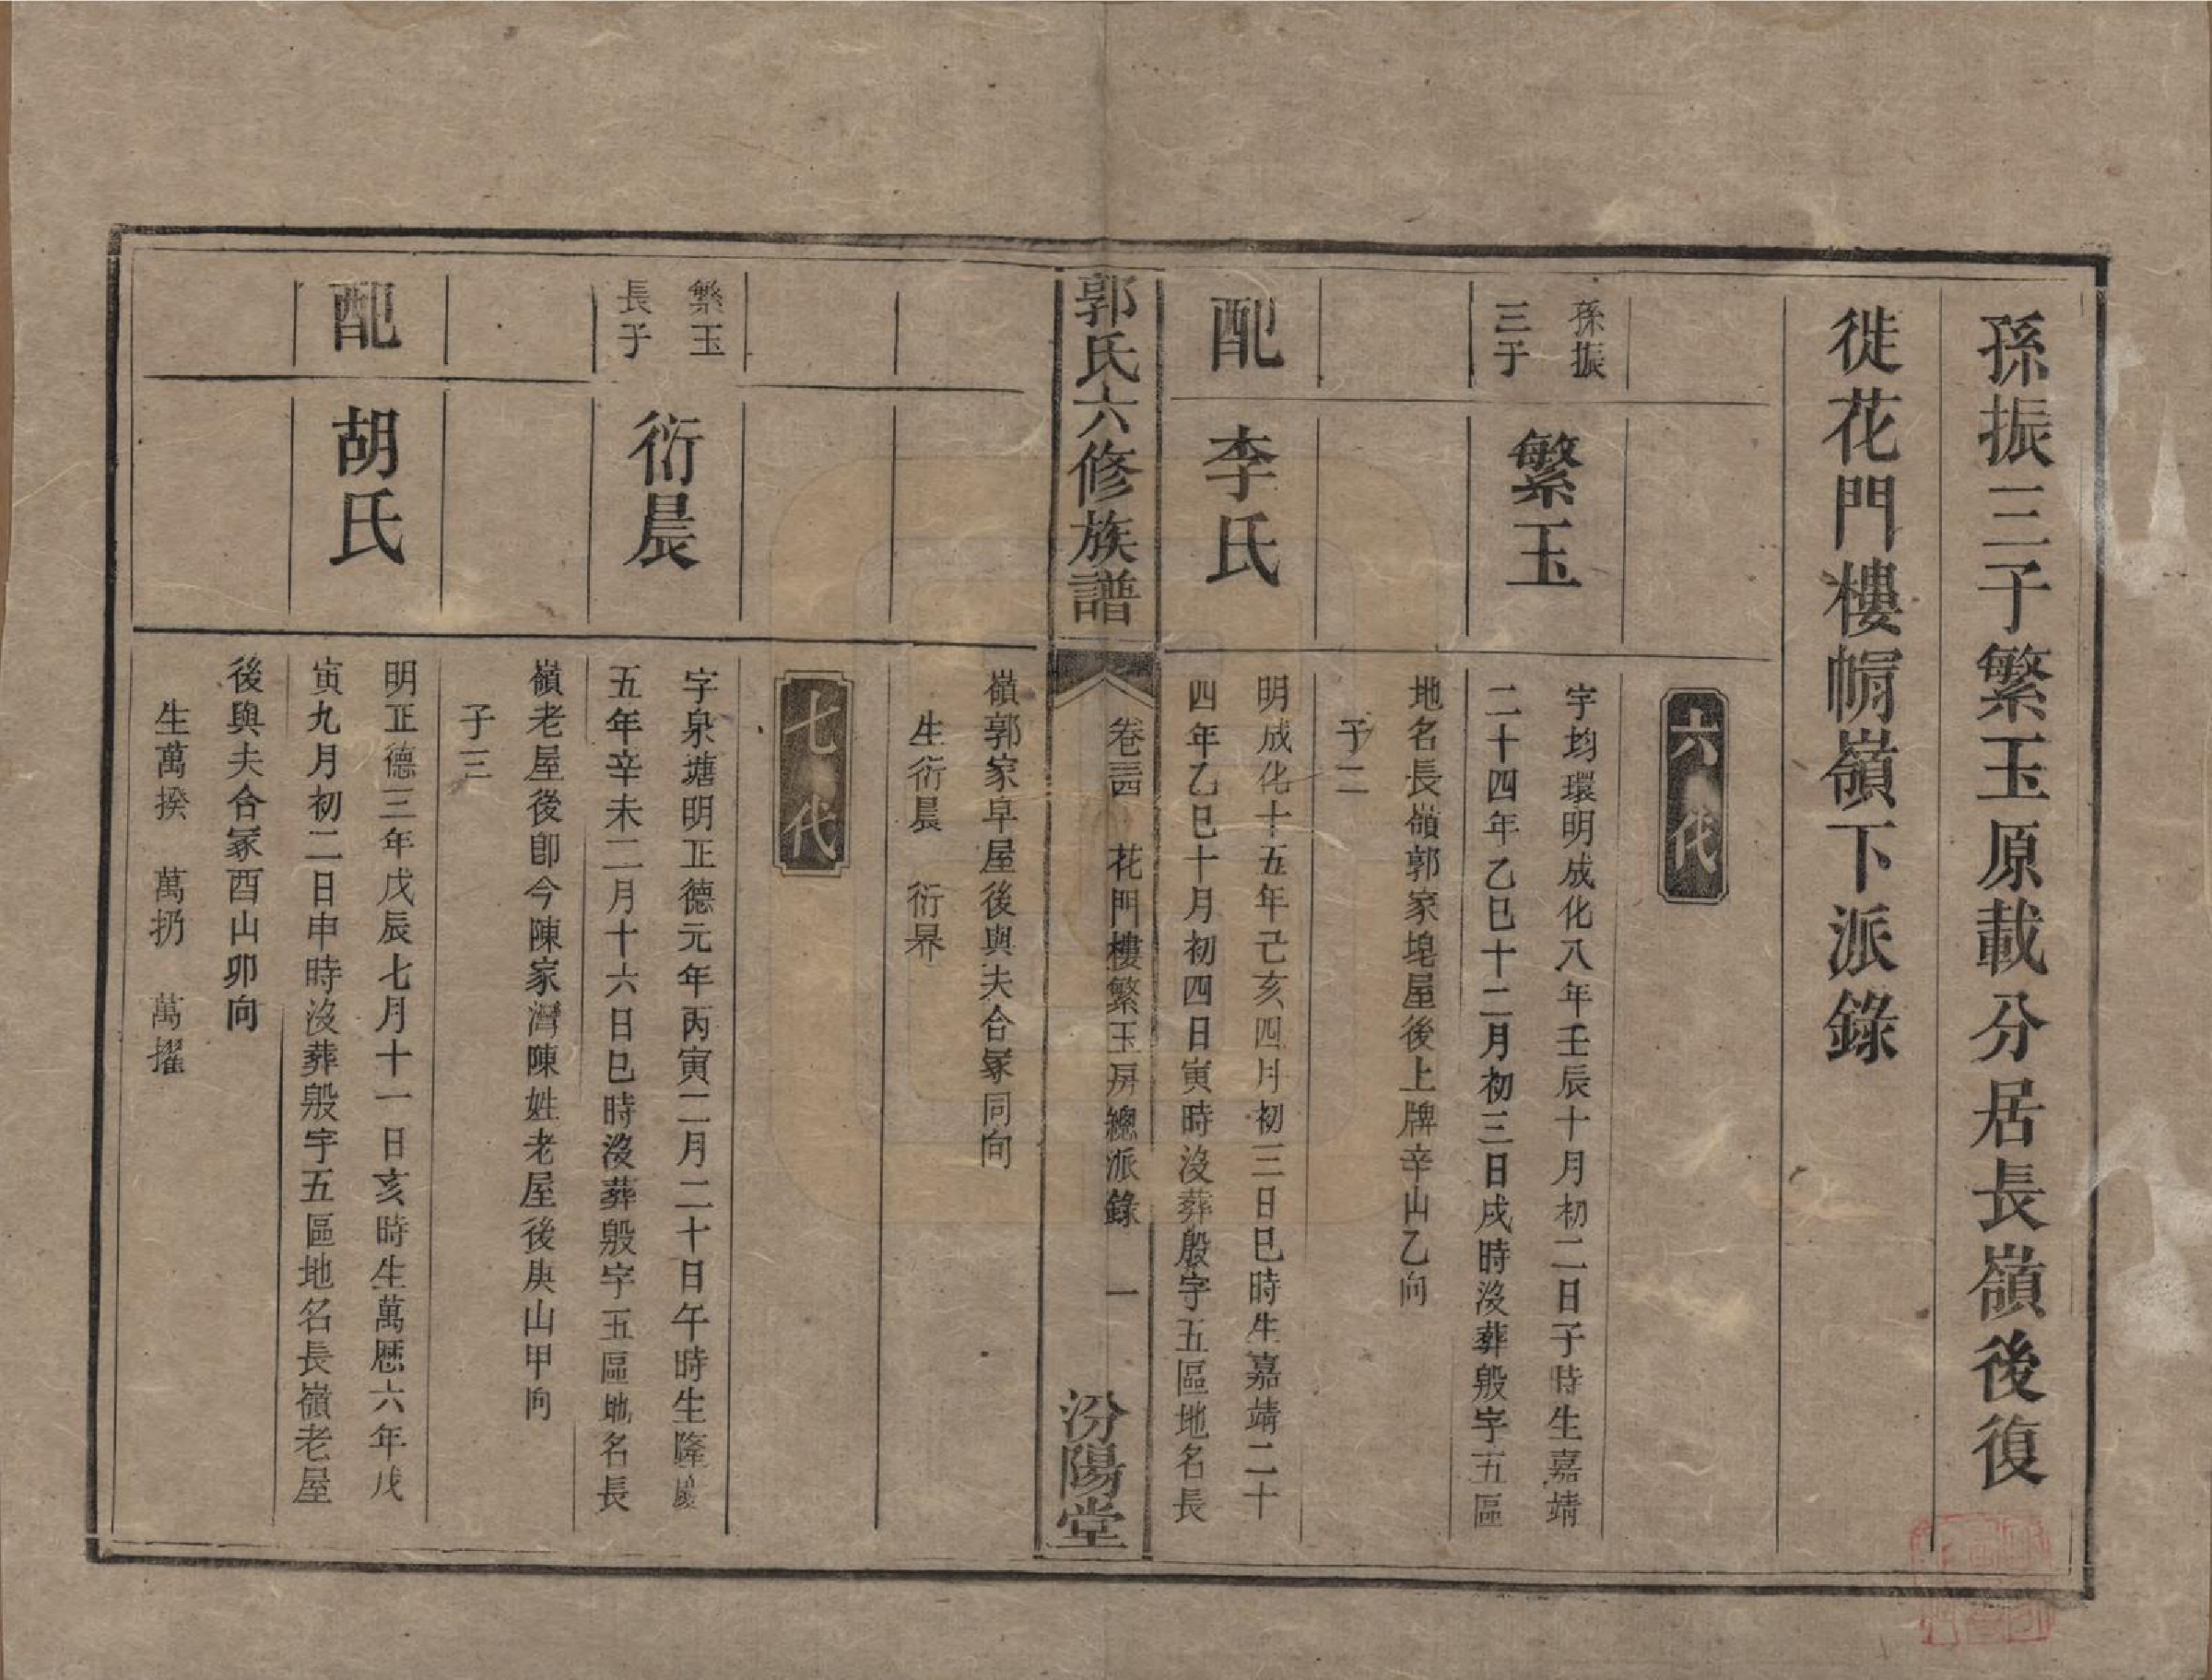 孫振三子繁玉原載分居長嶺後復
徙花門樓嶺下派錄
六代
孫振
三子
繁玉
字均環明成化八年壬辰十月初二日子時生嘉靖
二十四年乙巳十二月初三日戌時沒葬殷字五區
地名長嶺郭家埠屋後上牌辛山乙向
子二
配
李氏
明成化十五年己亥四月初三日巳時生嘉靖二十
四年乙巳十月初四日寅時沒葬殷字五區地名長
郭氏六修族譜
卷三四
花門樓繁玉房總派錄
一
汾陽堂
嶺郭家阜屋後與夫合冢同向
生衍晨 衍晜
七代
繁玉
長子
衍晨
字泉塘明正德元年丙寅二月二十日午時生隆慶
五年辛未二月十六日巳時沒葬殷字五區地名長
嶺老屋後卽今陳家灣陳姓老屋後庚山甲向
子三
配
胡氏
明正德三年戊辰七月十一日亥時生萬曆六年戊
寅九月初二日申時沒葬殷字五區地名長嶺老屋
後與夫合冢酉山卯向
生萬揆 萬扔 萬擢